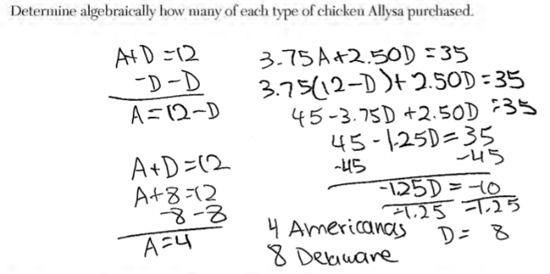 Determine algebraically how many of each type of chicken Allysa purchased.
A+D=12
-D -D
A=12-D
A+D=12
A+8=12
-8 -8
A=4
3.75A+2.50D=35
3.75(12-D)+2.50D=35
45-3.75D+2.50D=35
45-1.25D=35
-45 -45
-1.25D=-10
-1.25 -1.25
D=8
4 Americanas
8 Delaware